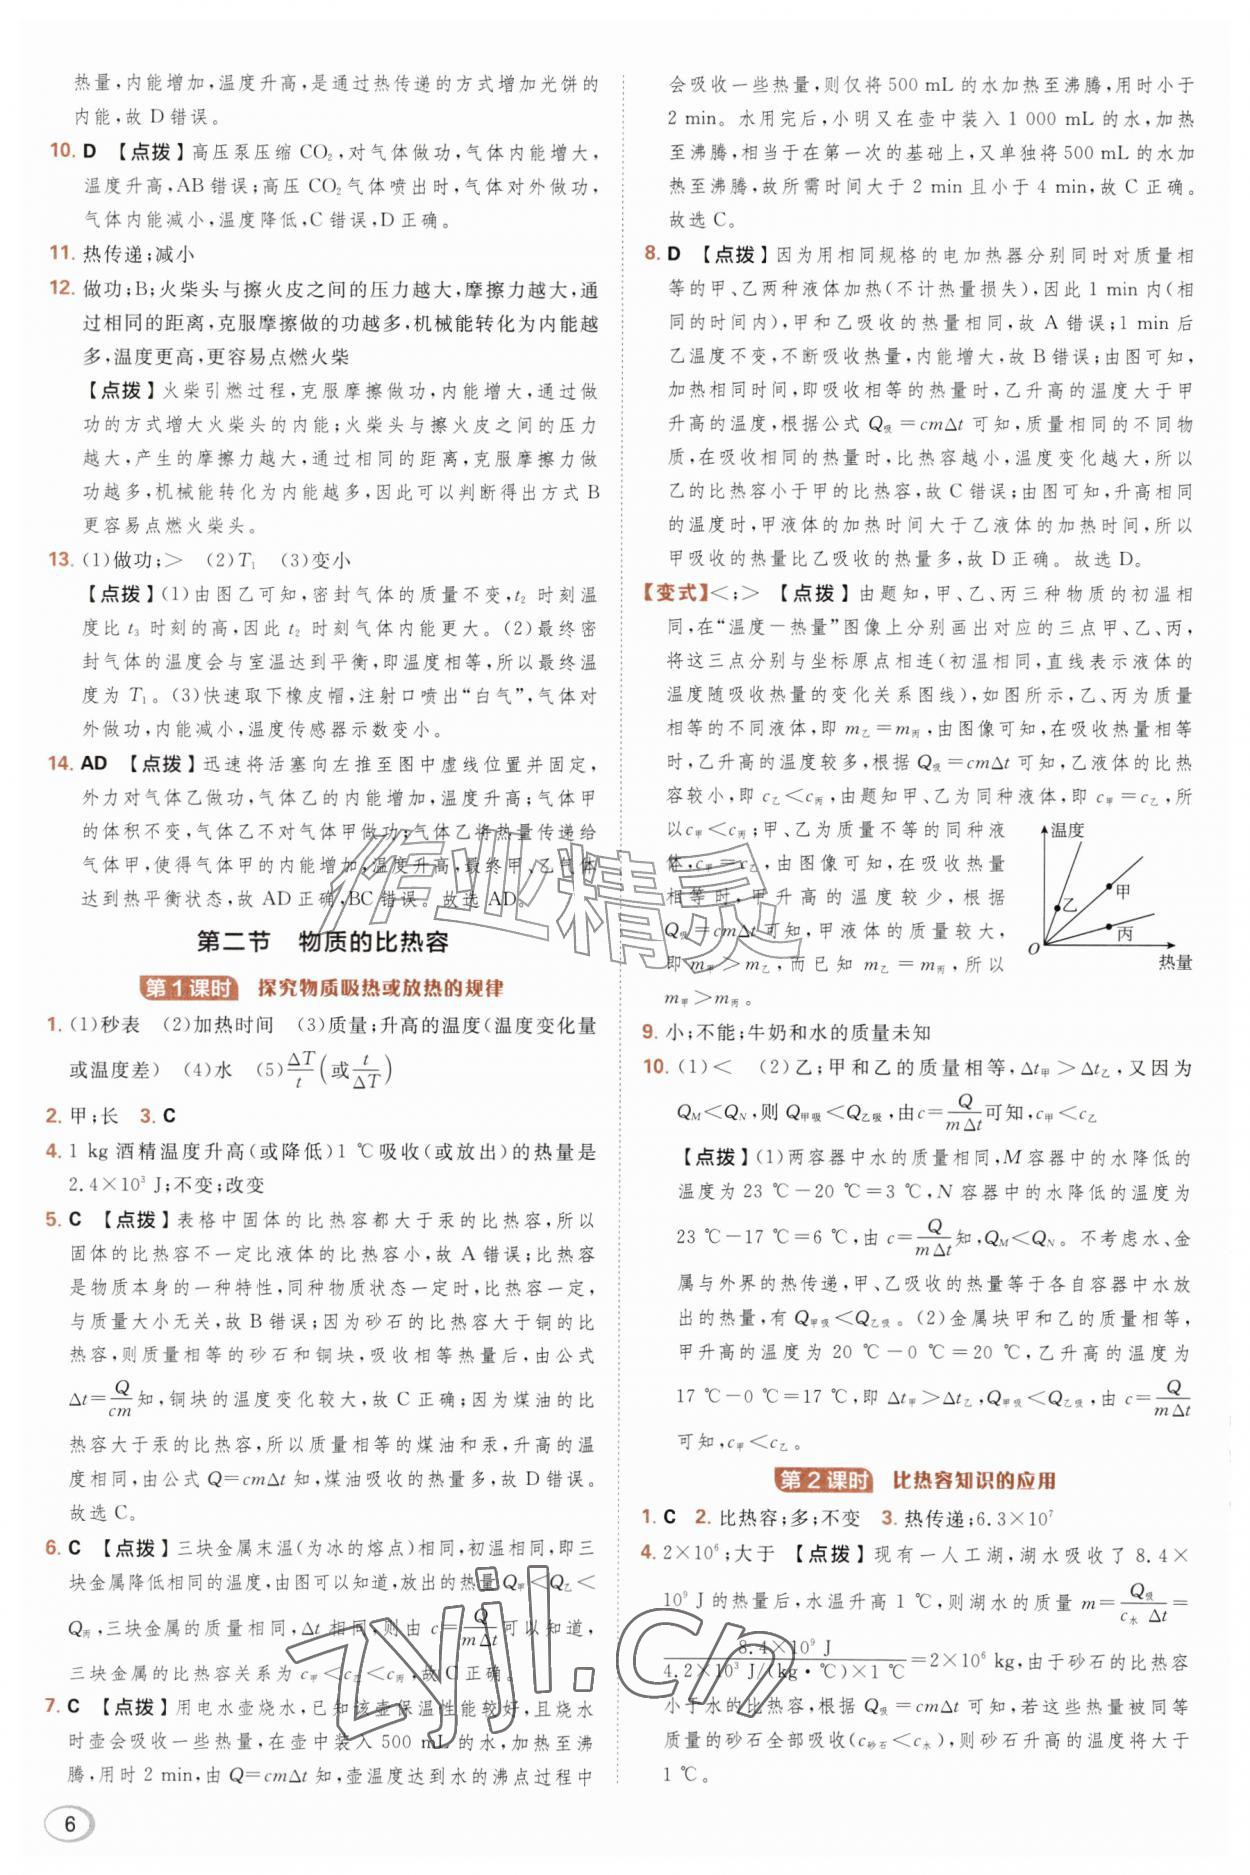 热量,内能增加,温度升高,是通过热传递的方式增加光饼的
内能,故 D 错误。
10. D 【点拨】高压泵压缩 CO₂,对气体做功,气体内能增大,
温度升高,AB 错误;高压 CO₂ 气体喷出时,气体对外做功,
气体内能减小,温度降低,C 错误,D 正确。
11. 热传递;减小
12. 做功;B;火柴头与擦火皮之间的压力越大,摩擦力越大,通
过相同的距离,克服摩擦做的功越多,机械能转化为内能越
多,温度更高,更容易点燃火柴
【点拨】火柴引燃过程,克服摩擦做功,内能增大,通过做
功的方式增大火柴头的内能;火柴头与擦火皮之间的压力
越大,产生的摩擦力越大,通过相同的距离,克服摩擦做
功越多,机械能转化为内能越多,因此可以判断得出方式 B
更容易点燃火柴头。
13. (1)做功;> (2)T₁ (3)变小
【点拨】(1)由图乙可知,密封气体的质量不变,t₂ 时刻温
度比 t₃ 时刻的高,因此 t₂ 时刻气体内能更大。(2)最终密
封气体的温度会与室温达到平衡,即温度相等,所以最终温
度为 T₁。(3)快速取下橡皮帽,注射口喷出“白气”,气体对
外做功,内能减小,温度传感器示数变小。
14. AD 【点拨】迅速将活塞向左推至图中虚线位置并固定,
外力对气体乙做功,气体乙的内能增加,温度升高;气体甲
的体积不变,气体乙不对气体甲做功;气体乙将热量传递给
气体甲,使得气体甲的内能增加,温度升高,最终甲、乙气体
达到热平衡状态,故 AD 正确,BC 错误。故选 AD。
第二节 物质的比热容
第 1 课时 探究物质吸热或放热的规律
1. (1)秒表 (2)加热时间 (3)质量;升高的温度(温度变化量
或温度差) (4)水 (5)ΔT/t(或t/ΔT)
2. 甲;长 3. C
4. 1 kg 酒精温度升高(或降低)1 ℃吸收(或放出)的热量是
2.4×10³ J;不变;改变
5. C 【点拨】表格中固体的比热容都大于汞的比热容,所以
固体的比热容不一定比液体的比热容小,故 A 错误;比热容
是物质本身的一种特性,同种物质状态一定时,比热容一定,
与质量大小无关,故 B 错误;因为砂石的比热容大于铜的比
热容,则质量相等的砂石和铜块,吸收相等热量后,由公式
Δt=Q/cm知,铜块的温度变化较大,故 C 正确;因为煤油的比
热容大于汞的比热容,所以质量相等的煤油和汞,升高的温
度相同,由公式 Q=cmΔt 知,煤油吸收的热量多,故 D 错误。
故选 C。
6. C 【点拨】三块金属末温(为冰的熔点)相同,初温相同,即三
块金属降低相同的温度,由图可以知道,放出的热量Q甲<Q乙<
Q丙,三块金属的质量相同,Δt 相同,则由 c=Q/mΔt可以知道,
三块金属的比热容关系为 c甲<c乙<c丙,故 C 正确。
7. C 【点拨】用电水壶烧水,已知该壶保温性能较好,且烧水
时壶会吸收一些热量,在壶中装入 500 mL 的水,加热至沸
腾,用时 2 min,由 Q=cmΔt 知,壶温度达到水的沸点过程中
6
会吸收一些热量,则仅将 500 mL 的水加热至沸腾,用时小于
2 min。水用完后,小明又在壶中装入 1 000 mL 的水,加热
至沸腾,相当于在第一次的基础上,又单独将 500 mL 的水加
热至沸腾,故所需时间大于 2 min 且小于 4 min,故 C 正确。
故选 C。
8. D 【点拨】因为用相同规格的电加热器分别同时对质量相
等的甲、乙两种液体加热(不计热量损失),因此 1 min 内(相
同的时间内),甲和乙吸收的热量相同,故 A 错误;1 min 后
乙温度不变,不断吸收热量,内能增大,故 B 错误;由图可知,
加热相同时间,即吸收相等的热量时,乙升高的温度大于甲
升高的温度,根据公式 Q吸=cmΔt 可知,质量相同的不同物
质,在吸收相同的热量时,比热容越小,温度变化越大,所以
乙的比热容小于甲的比热容,故 C 错误;由图可知,升高相同
的温度时,甲液体的加热时间大于乙液体的加热时间,所以
甲吸收的热量比乙吸收的热量多,故 D 正确。故选 D。
【变式】<;> 【点拨】由题知,甲、乙、丙三种物质的初温相
同,在“温度-热量”图像上分别画出对应的三点甲、乙、丙,
将这三点分别与坐标原点相连(初温相同,直线表示液体的
温度随吸收热量的变化关系图线),如图所示,乙、丙为质量
相等的不同液体,即 m乙=m丙,由图像可知,在吸收热量相等
时,乙升高的温度较多,根据 Q吸=cmΔt 可知,乙液体的比热
容较小,即 c乙<c丙,由题知甲、乙为同种液体,即 c甲=c乙,所
以c甲<c丙;甲、乙为质量不等的同种液
体,c甲=c乙,由图像可知,在吸收热量
相等时,甲升高的温度较少,根据
Q吸=cmΔt 可知,甲液体的质量较大,
即 m甲>m乙,而已知 m乙=m丙,所以
m甲>m丙。
温度
乙
甲
丙
O
热量
9. 小;不能;牛奶和水的质量未知
10. (1)< (2)乙;甲和乙的质量相等,Δt甲>Δt乙,又因为
Q_M<Q_N,则 Q甲吸<Q乙吸,由c=Q/mΔt可知,c甲<c乙
【点拨】(1)两容器中水的质量相同,M 容器中的水降低的
温度为 23 ℃-20 ℃=3 ℃,N 容器中的水降低的温度为
23 ℃-17 ℃=6 ℃,由 c=Q/mΔt知,Q_M<Q_N。不考虑水、金
属与外界的热传递,甲、乙吸收的热量等于各自容器中水放
出的热量,有 Q甲吸<Q乙吸。(2)金属块甲和乙的质量相等,
甲升高的温度为 20 ℃-0 ℃=20 ℃,乙升高的温度为
17 ℃-0 ℃=17 ℃,即 Δt甲>Δt乙,Q甲吸<Q乙吸,由 c=Q/mΔt
可知,c甲<c乙。
第 2 课时 比热容知识的应用
1. C 2. 比热容;多;不变 3. 热传递;6.3×10⁷
4. 2×10⁶;大于 【点拨】现有一人工湖,湖水吸收了 8.4×
10⁹ J 的热量后,水温升高 1 ℃,则湖水的质量 m=Q吸/c水Δt=
8.4×10⁹ J/4.2×10³ J/(kg·℃)×1 ℃=2×10⁶ kg,由于砂石的比热容
小于水的比热容,根据 Q吸=cmΔt 可知,若这些热量被同等
质量的砂石全部吸收(c砂石<c水),则砂石升高的温度将大于
1 ℃。
作业精灵
zyjl.cn